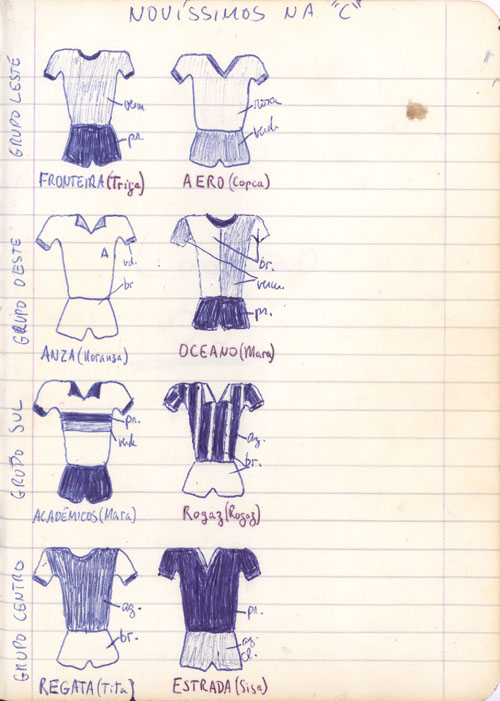 NOVÍSSIMOS NA "C"
GRUPO LESTE
verm
pr.
FRONTEIRA (Trija)
roxa
verde
AERO (Copca)
GRUPO OESTE
A
vd.
br
ANZA (Noranza)
br.
verm.
pr.
OCEANO (Mara)
GRUPO SUL
pr.
verde
ACADÊMICOS (Mara)
az.
br.
ROGAZ (Rogaz)
GRUPO CENTRO
az.
br.
REGATA (Tita)
pr.
az.
cl.
ESTRADA (Sisa)